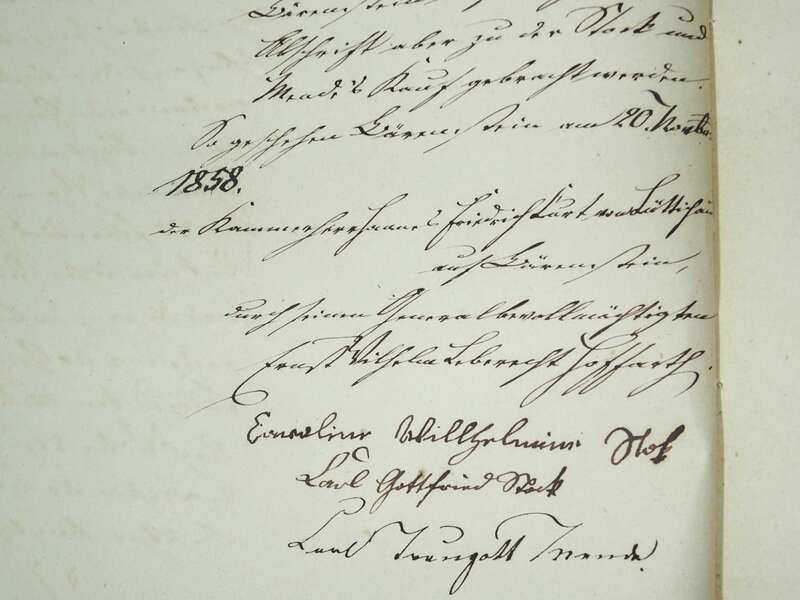 Bärenstein,
Abschrift aber zu der Stock und
Mende's Kauf gebracht werden.
So geschehen Bärenstein am 20. Novbr.
1858.
der Kammerherr Hannes Friedrich Curt von Lüttichau
auf Bärenstein,
durch seinen Generalbevollmächtigten
Ernst Wilhelm Leberecht Hoffarth.
Caroline Willhelmine Stok
Carl Gottfried Stock
Carl Traugott Mende.